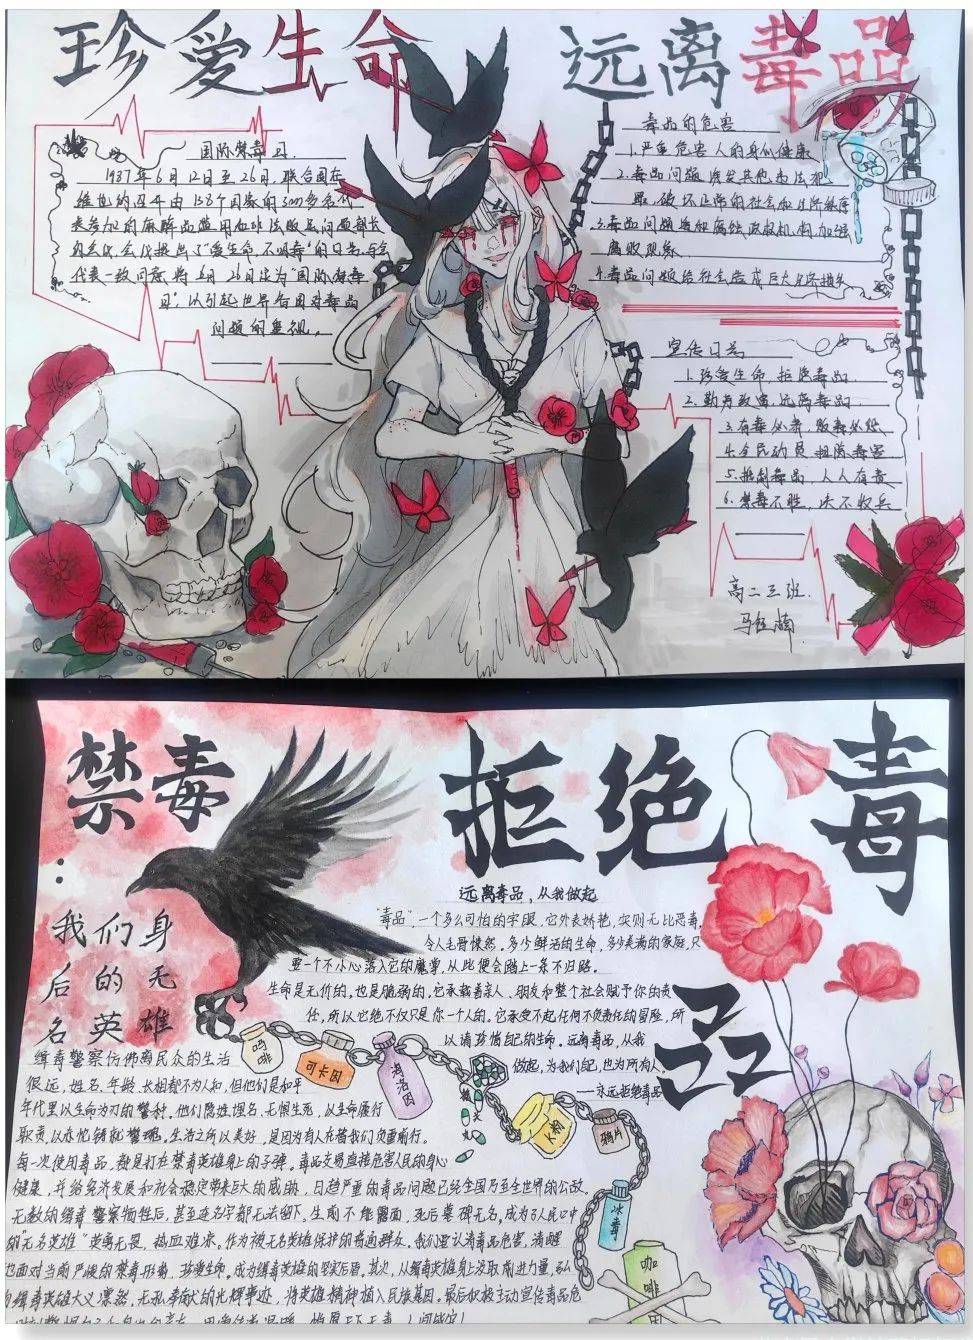 珍爱生命 远离毒品
国际禁毒日
1987年6月12日至26日,联合国在
维也纳召开由138个国家的3000多名代
表参加的麻醉品滥用和非法贩运问题部长
级会议,会议提出了"爱生命,不吸毒"的口号,与会
代表一致同意将6月26日定为"国际禁毒
日",以引起世界各国对毒品
问题的重视。
毒品的危害
1.严重危害人的身心健康
2.毒品问题诱发其他违法犯
罪,破坏正常的社会和经济秩序
3.毒品问题
腐败现象
4.毒品问题给社会造成巨大经济损失
宣传口号
1.珍爱生命,拒绝毒品
2.远离毒品
3.有毒必肃,贩毒必惩
4.全民动员
5.抵制毒品,人人有责
6.禁毒不胜,决不收兵
高二三班
禁毒:
我们身
后的无
名英雄
拒绝毒品
远离毒品,从我做起
"毒品"一个多么可怕的字眼,它外表娇艳,实则无比恶毒,
令人毛骨悚然。多少鲜活的生命,多少美满的家庭,只
要一个不小心落入它的魔掌,从此便会踏上一条不归路。
生命是无价的,也是脆弱的,它承载着亲人、朋友和整个社会赋予你的责
任,所以它绝不仅只是你一个人的。它承受不起任何不负责任的冒险,所
以请珍惜自己的生命。远离毒品,从我
做起,为我们自己,也为所有人。
——永远拒绝毒品
缉毒警察仿佛离民众的生活
很远,姓名、年龄、长相都不为人知,但他们是和平
年代里以生命为刃的警种。他们隐姓埋名、无惧生死,以生命履行
职责,以赤忱铸就警魂。生活之所以美好,是因为有人在替我们负重前行。
每一次使用毒品,都是打在禁毒英雄身上的子弹。毒品交易直接危害人民的身心
健康,并给经济发展和社会稳定带来巨大的威胁,日趋严重的毒品问题已经
无数的缉毒警察牺牲后,甚至连名字都无法留下。生前不能露面,死后墓碑无名。成为了人民口中
的"无名英雄"英勇无畏,热血难凉。作为被无名英雄保护的普通群众,我们要认清毒品危害,清醒
面对当前严峻的禁毒形势,珍爱生命。成为缉毒英雄的坚实后盾。其次,从缉毒英雄身上汲取前进力量,弘
缉毒英雄大义凛然、无私奉献的光辉事迹,将英雄精神植入民族基因。最后积极主动宣传毒品危
吗啡
可卡因
海洛因
K粉
鸦片
冰毒
咖啡